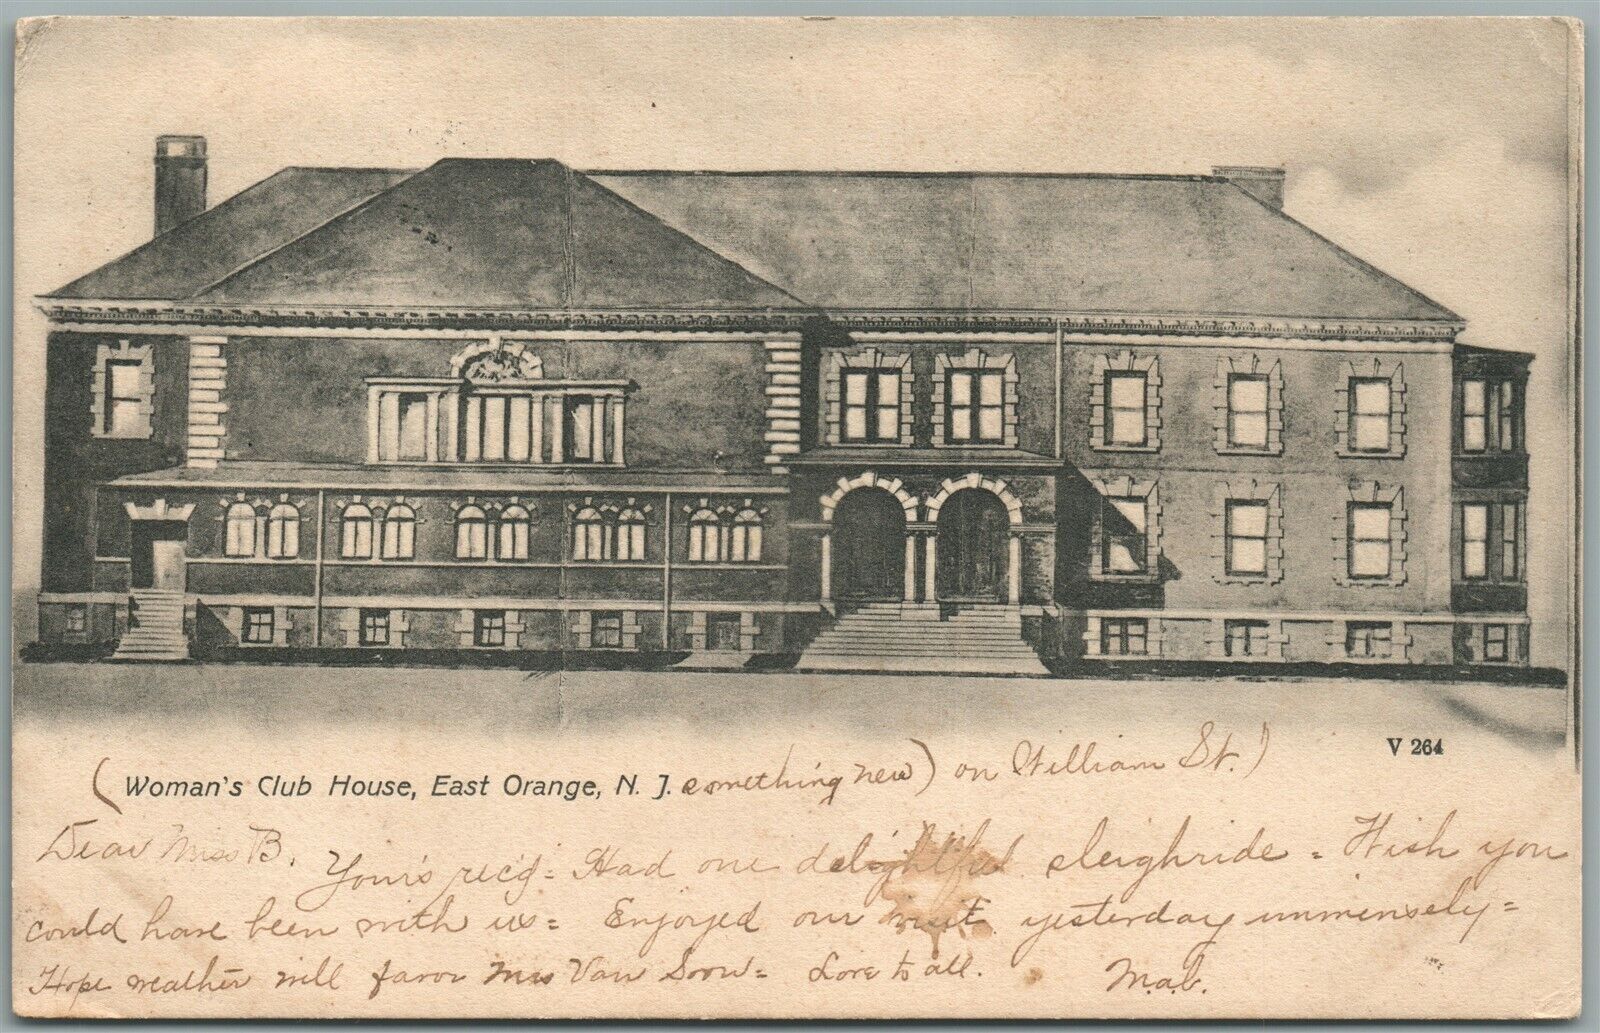 V 264
(Woman's Club House, East Orange, N. J. something new) on William St.)
Dear Miss B.
Your's rec'd = Had one delightful sleighride = Wish you
could have been with us = Enjoyed our visit yesterday immensely =
Hope weather will favor Mrs Van = Love to all. M.a.b.